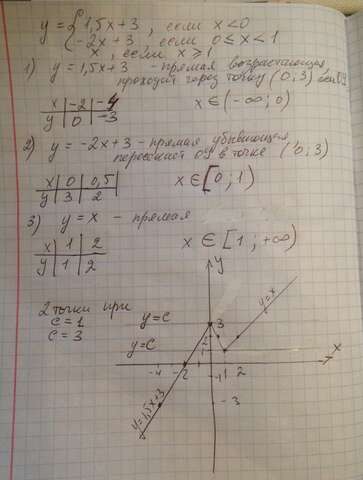 y = { 1,5x+3, если x<0
-2x+3, если 0≤x<1
x, если x≥1
1) y = 1,5x+3 - прямая возрастающая,
проходит через точку (0;3)
x | -2 | -4
y | 0 | -3
x ∈ (-∞; 0)
2) y = -2x+3 - прямая убывающая,
пересекает OY в точке (0;3)
x | 0 | 0,5
y | 3 | 2
x ∈ [0; 1)
3) y = x - прямая
x | 1 | 2
y | 1 | 2
x ∈ [1; +∞)
2 точки при
c = 1
c = 3
y=c
y=c
y
3
y=x
x
-4 -2 1 2
-3
y=1,5x+3